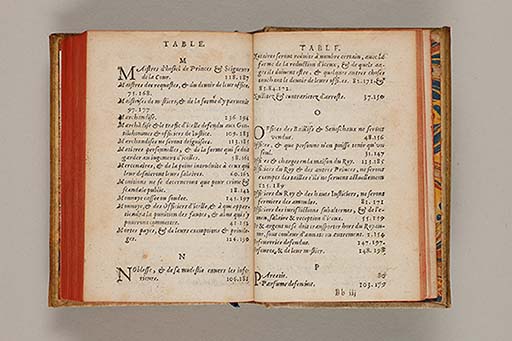 TABLE.
M
MAistres d'hostel de Princes & Seigneurs
de la Cour. 118.187
Maistres des requestes, & du devoir de leur office.
75.168.
Maistrises de mestiers, & de la forme d'y parvenir
97.177
Marchandise. 236.294
Marchandise & le trafic d'icelle defendu aux Gentilshommes
& officiers de Iustice. 109.183
Marchandises ne seront desguisees. 113.185
Matieres personnelles, & de la forme qui se doit
garder au iugement d'icelles. 58.161
Mercenaires, & de la peine introduite à ceux qui
leur desnieront leurs salaires. 60.163
Monitions ne se decerneront que pour crime &
scandale public. 18.143
Monnoye cassee ou soudee. 145.197
Monnoye, & des Officiers d'icelle, & à que appartiendra
la punition des fautes, & abus qui y
pourront commettre.
Mortes payes, & de leurs exemptions & privileges.
126.190
N
NOblesse, & de sa modestie envers les inferieurs.
106.181
TABLE.
Notaires seront reduits à nombre certain, avec la
forme de la reduction d'iceux, & de quels
aages ils doivent estre, & quelques autres choses
touchant le devoir de leur office. 82. 171. &
83.84.172.
Nullitez & contrarietez d'arrests. 37.150
O
OFfices des Baillifs & Seneschaux ne seront
vendus. 48.156
Offices, & que personne n'en puisse tenir qu'un
seul. 31.147
Offices & charges en la maison du Roy. 123.188
Officiers du Roy & des autres Princes, ne seront
exempts des tailles s'ils ne servent actuellement
125.189
Officiers du Roy & des hauts Iusticiers, ne seront
fermiers des amendes. 82. 171
Officiers des iurisdictions subalternes, & de l'examen,
salaire & reception d'iceux. 55.159
Or & argent ne se doit transporter hors du Royaume,
sous couleur d'annates ou autrement. 2.136
147.197.
148.198
P
PArrains. 80
Parfums defendus. 103.179
Bb iij